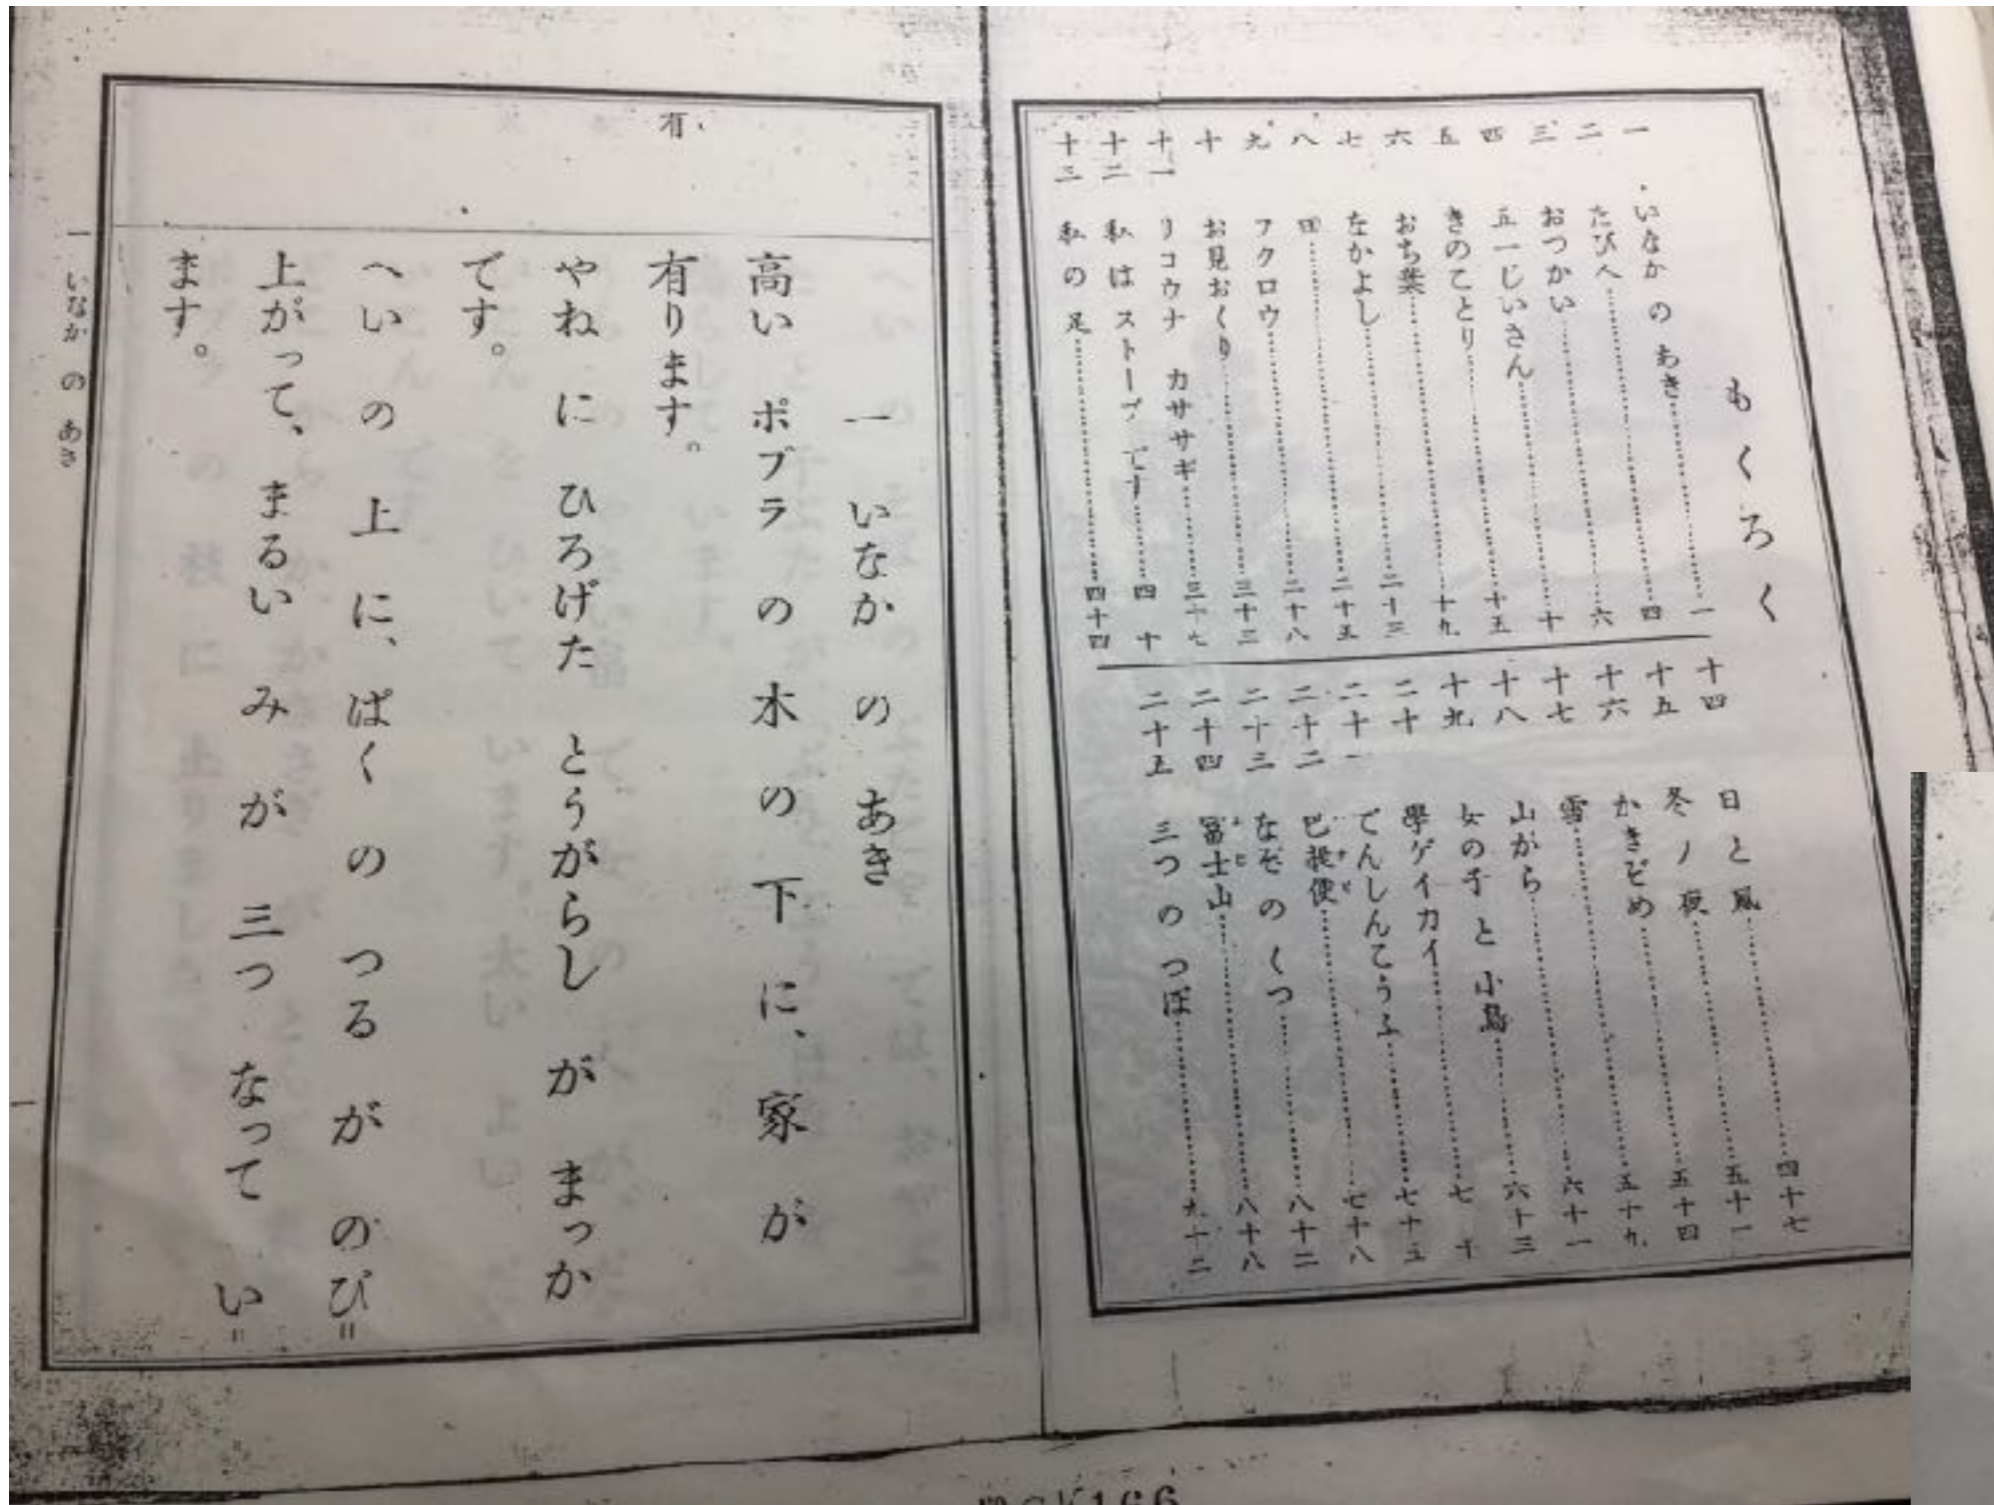 もくろく
一 いなか の あき 一
二 たびへ 四
三 おつかい 六
四 五一じいさん 十
五 きのことり 十五
六 おち葉 十九
七 なかよし 二十三
八 四 二十五
九 フクロウ 二十八
十 お見おくり 三十三
十一 リコウナ カササギ 三十七
十二 私 は ストーブ 四十
十三 私 の 足 四十四
十四 日 と 風 四十七
十五 冬 ノ 夜 五十一
十六 かきぞめ 五十四
十七 雪 五十九
十八 山がら 六十一
十九 女の子 と 小鳥 六十三
二十 學ゲイカイ 七十
二十一 でんしんこうふ 七十五
二十二 巴提便 七十八
二十三 なぞ の くつ 八十二
二十四 富士山 八十八
二十五 三つ の つぼ 九十二
有
一 いなか の あき
高い ポプラ の 木 の 下 に、 家 が
有ります。
やね に ひろげた とうがらし が まっか
です。
へい の 上 に、 ぱく の つる が のび＝
上がって、 まるい み が 三つ なって い＝
ます。
一 いなか の あき
一
166